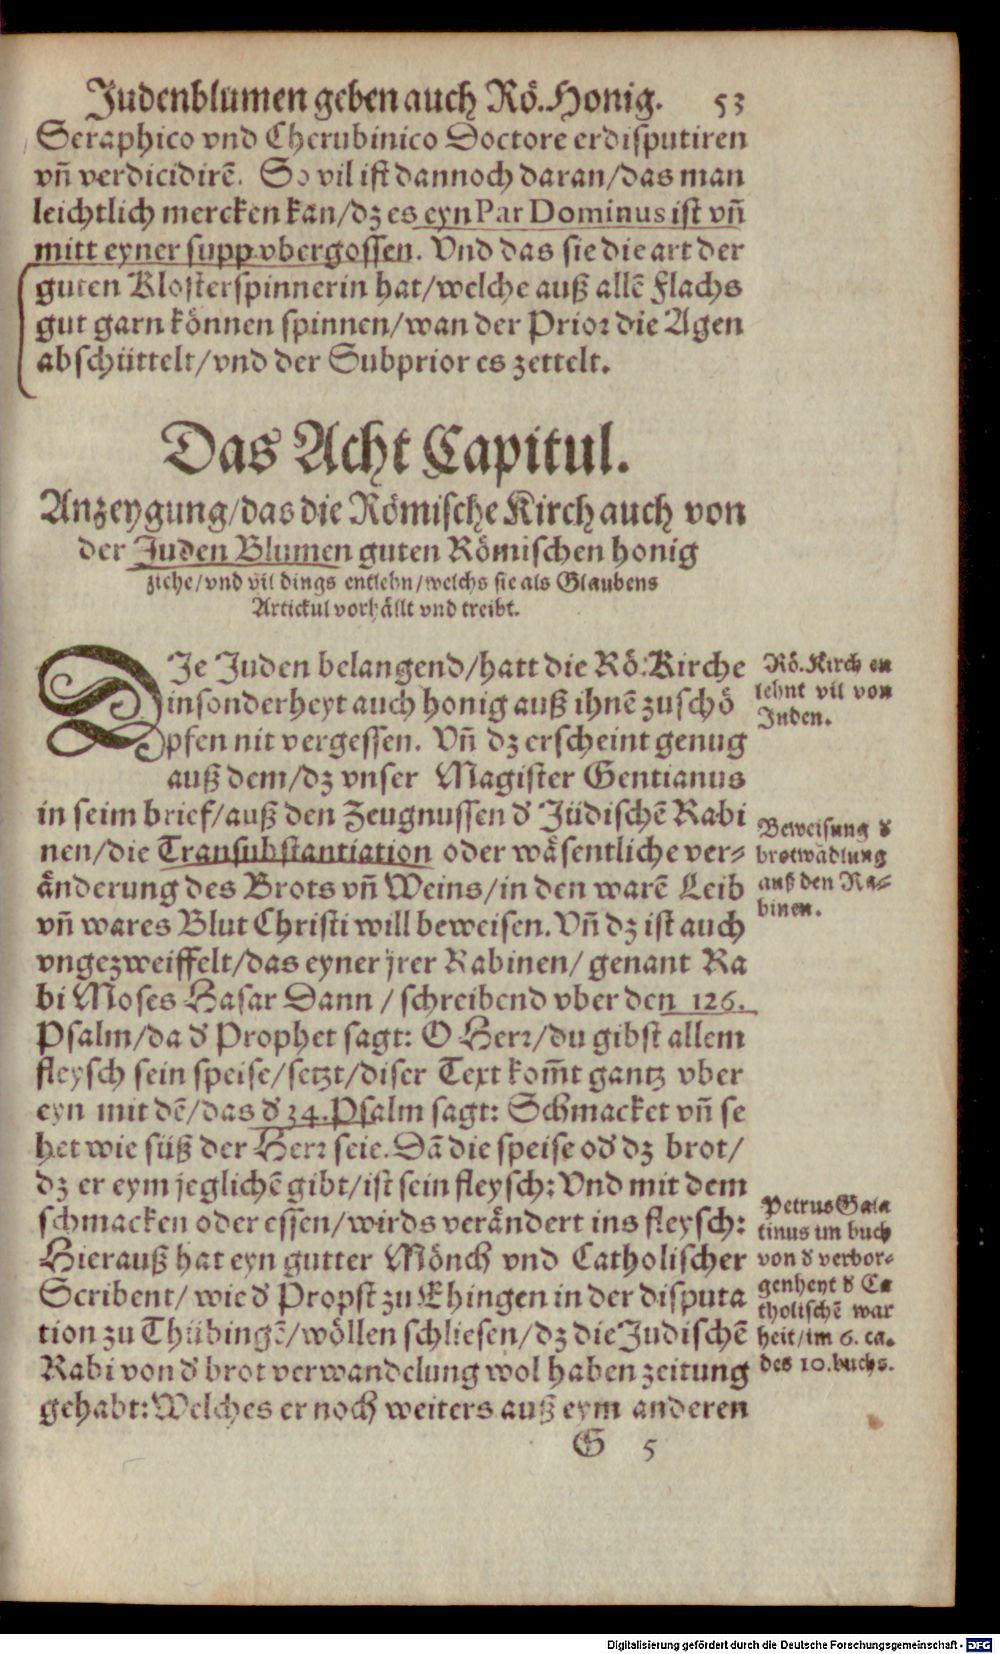 Judenblumen geben auch Rö. Honig. 53
Seraphico vnd Cherubinico Doctore erdisputiren
vñ verdicidirẽ. So vil ist dannoch daran/das man
leichtlich mercken kan/dz es eyn Par Dominus ist vñ
mitt eyner supp vbergossen. Vnd das sie die art der
guten Klosterspinnerin hat/welche auß allẽ Flachs
gut garn können spinnen/wan der Prior die Agen
abschüttelt/vnd der Subprior es zettelt.
Das Acht Capitul.
Anzeygung/das die Römische Kirch auch von
der Juden Blumen guten Römischen honig
ziehe/vnd vil dings entlehn/welchs sie als Glaubens
Artickul vorhällt vnd treibt.
DJe Juden belangend/hatt die Rö. Kirche
insonderheyt auch honig auß ihnẽ zuschö
pfen nit vergessen. Vñ dz erscheint genug
auß dem/dz vnser Magister Gentianus
in seim brief/auß den Zeugnussen d' Jüdischẽ Rabi
nen/die Transubstantiation oder wäsentliche ver-
änderung des Brots vñ Weins/in den warẽ Leib
vñ wares Blut Christi will beweisen. Vñ dz ist auch
vngezweiffelt/das eyner jrer Rabinen/ genant Ra
bi Moses Hasar Dann / schreibend vber den 126.
Psalm/da d' Prophet sagt: O Herr/du gibst allem
fleysch sein speise/setzt/diser Text kom̃t gantz vber
eyn mit dẽ/das d' 34. Psalm sagt: Schmacket vñ se
het wie süß der Herr seie. Dã die speise od' dz brot/
dz er eym jeglichẽ gibt/ist sein fleysch: Vnd mit dem
schmacken oder essen/wirds verändert ins fleysch:
Hierauß hat eyn gutter Mönch vnd Catholischer
Scribent/ wie d' Propst zu Ehingen in der disputa
tion zu Thübingẽ/wöllen schliesen/dz die Judischẽ
Rabi von d' brot verwandelung wol haben zeitung
gehabt: Welches er noch weiters auß eym anderen
G 5
Rö. Kirch en
lehnt vil von
Juden.
Beweisung d'
brotwãdlung
auß den Ra-
binen.
Petrus Gala
tinus im buch
von d' verbor-
genheyt d' Ca
tholischẽ war
heit/im 6. ca.
des 10. buchs.
Digitalisierung gefördert durch die Deutsche Forschungsgemeinschaft - DFG